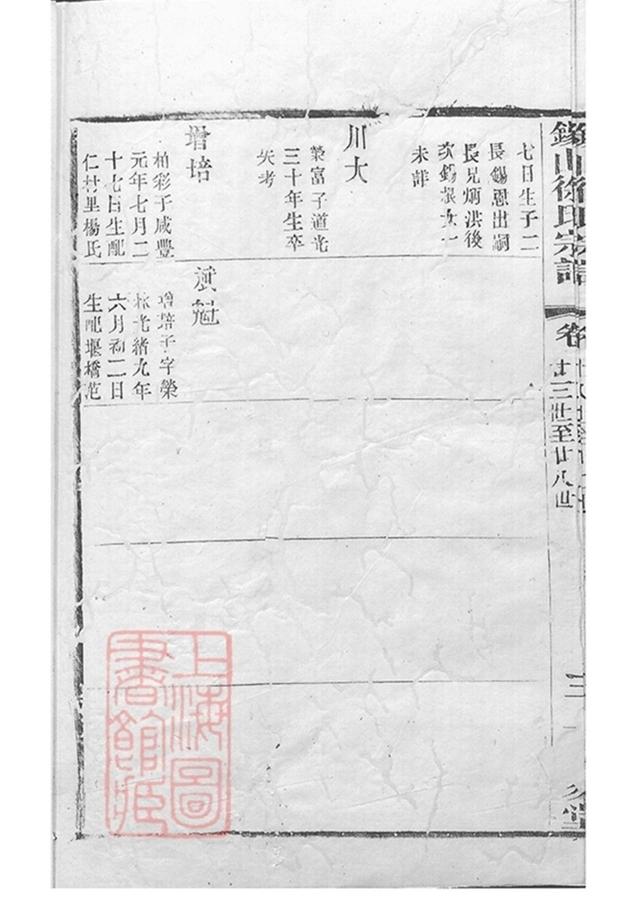 山徐氏宗譜
卷
廿三世至廿八世
七日生子二
長錫恩出嗣
長兄炳洪後
次錫根女一
未詳
川大
榮富子道光
三十年生卒
失考
增培
柏彩子咸豐
元年七月二
十七日生配
仁村里楊氏
斌魁
增培子字榮
林光緒九年
六月初二日
生配堰橋范
上海圖
書館藏